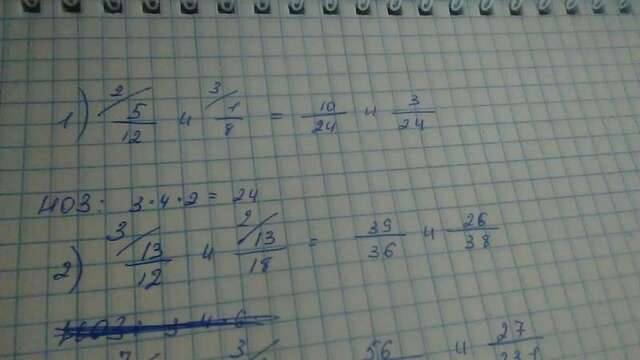 1) 2/ 5/12 и 3/ 1/8 = 10/24 и 3/24
НОЗ: 3·4·2 = 24
2) 3/ 13/12 и 2/ 13/18 = 39/36 и 26/38
НОЗ: 3 4 6
7/ 3/ 56 и 27